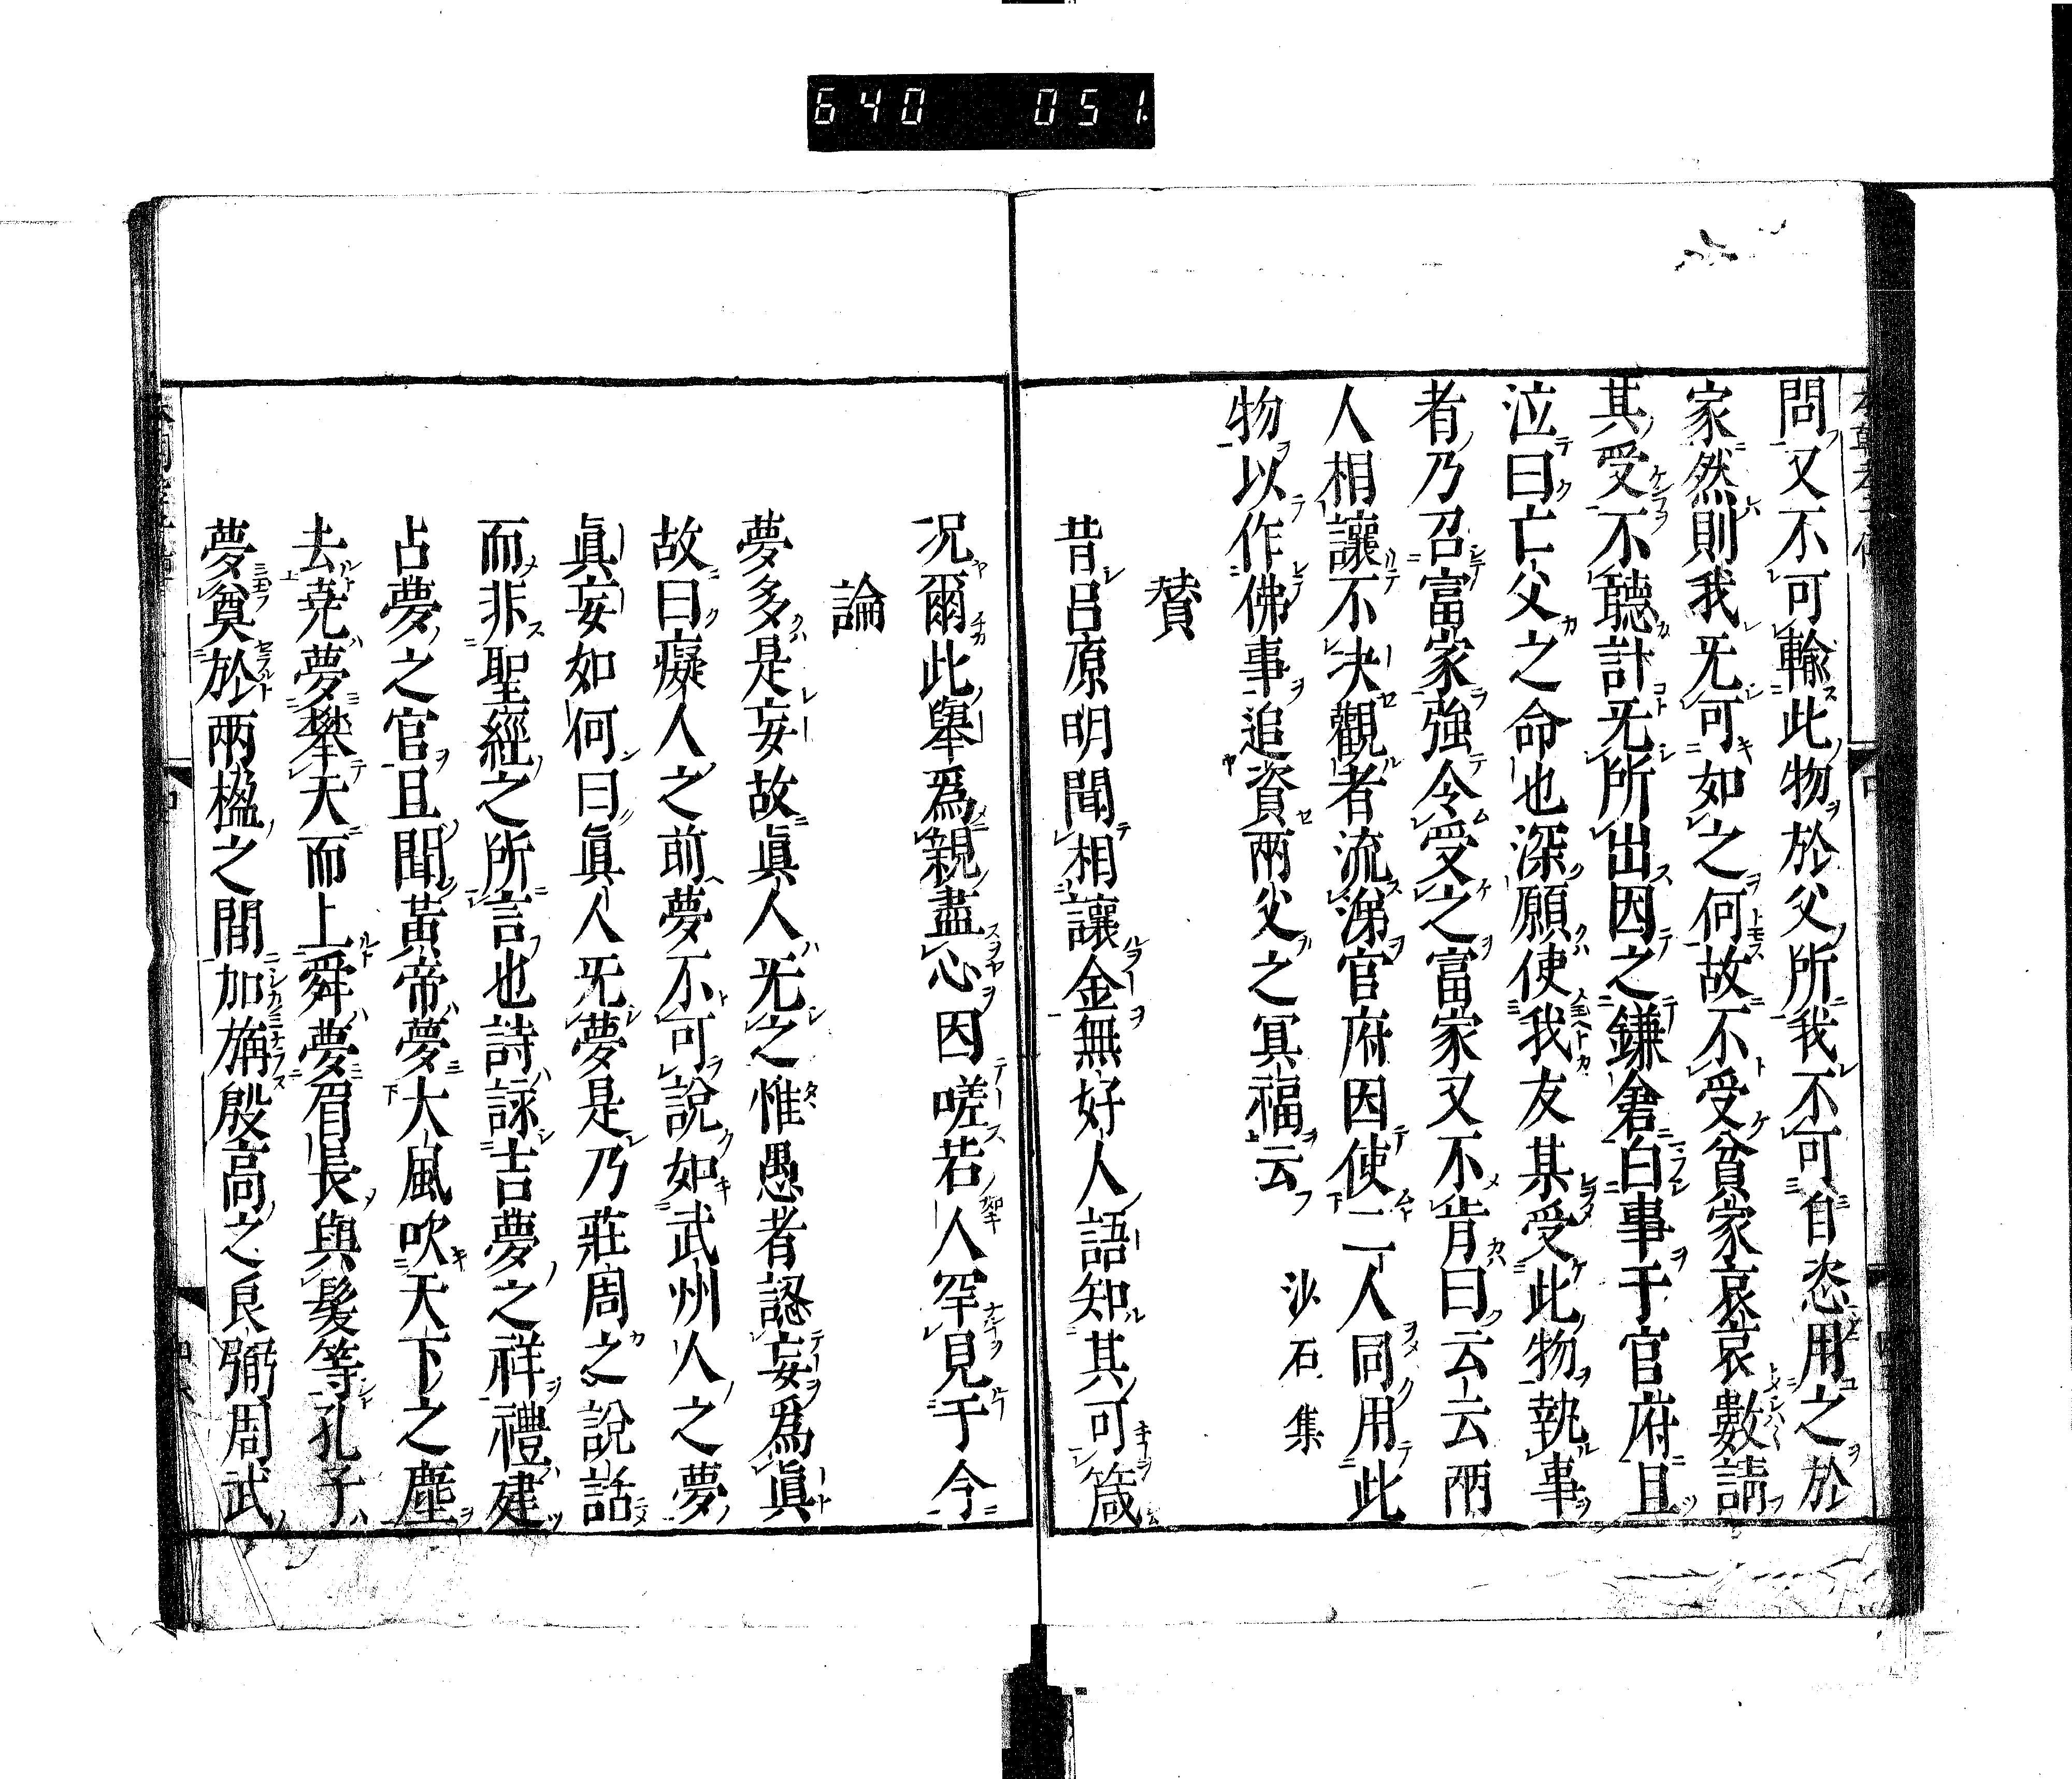 640 051
問又不可輸此物於父所我不可自恣用之於
家然則我旡可如之何故不受貧家哀哀數請
其受不聽計旡所出因之鎌倉白事于官府且
泣曰亡父之命也深願使我友某受此物執事
者乃召富家強令受之富家又不肯曰云云兩
人相讓不决觀者流涕官府因使二人同用此
物以作佛事追資兩父之冥福云 沙石集
賛
昔呂原明聞相讓金無好人語知其可箴
况爾此舉爲親盡心因嗟若人罕見于今
論
夢多是妄故眞人旡之惟愚者認妄爲眞
故曰癡人之前夢不可說如武州人之夢
眞妄如何曰眞人旡夢是乃莊周之說話
而非聖經之所言也詩詠吉夢之祥禮建
占夢之官且聞黃帝夢大風吹天下之塵
去尭夢攀天而上舜夢眉長與髮等孔子
夢奠於兩楹之間加旃殷高之良弼周武